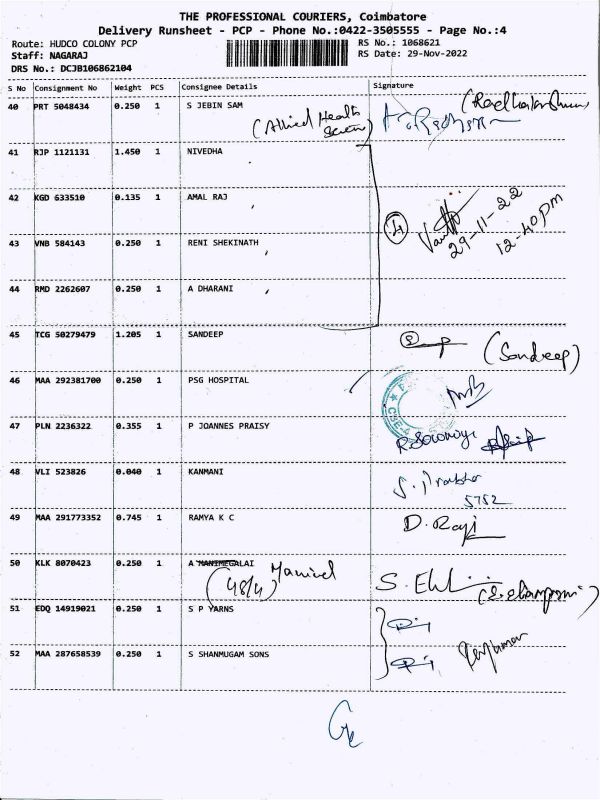 THE PROFESSIONAL COURIERS, Coimbatore
Delivery Runsheet - PCP - Phone No.:0422-3505555 - Page No.:4
Route: HUDCO COLONY PCP
Staff: NAGARAJ
DRS No.: DCJB106862104
RS No.: 1068621
RS Date: 29-Nov-2022
S No Consignment No Weight PCS Consignee Details Signature
40 PRT 5048434 0.250 1 S JEBIN SAM
(Allied Health
41 RJP 1121131 1.450 1 NIVEDHA
42 KGD 633510 0.135 1 AMAL RAJ
4
29-11-22
12-40pm
43 VNB 584143 0.250 1 RENI SHEKINATH
44 RMD 2262607 0.250 1 A DHARANI
45 TCG 50279479 1.205 1 SANDEEP
(Sandeep)
46 MAA 292381700 0.250 1 PSG HOSPITAL
47 PLN 2236322 0.355 1 P JOANNES PRAISY
48 VLI 523826 0.040 1 KANMANI
5752
49 MAA 291773352 0.745 1 RAMYA K C
D. Raji
50 KLK 8070423 0.250 1 A MANIMEGALAI
(48/4)
51 EDQ 14919021 0.250 1 S P YARNS
52 MAA 287658539 0.250 1 S SHANMUGAM SONS